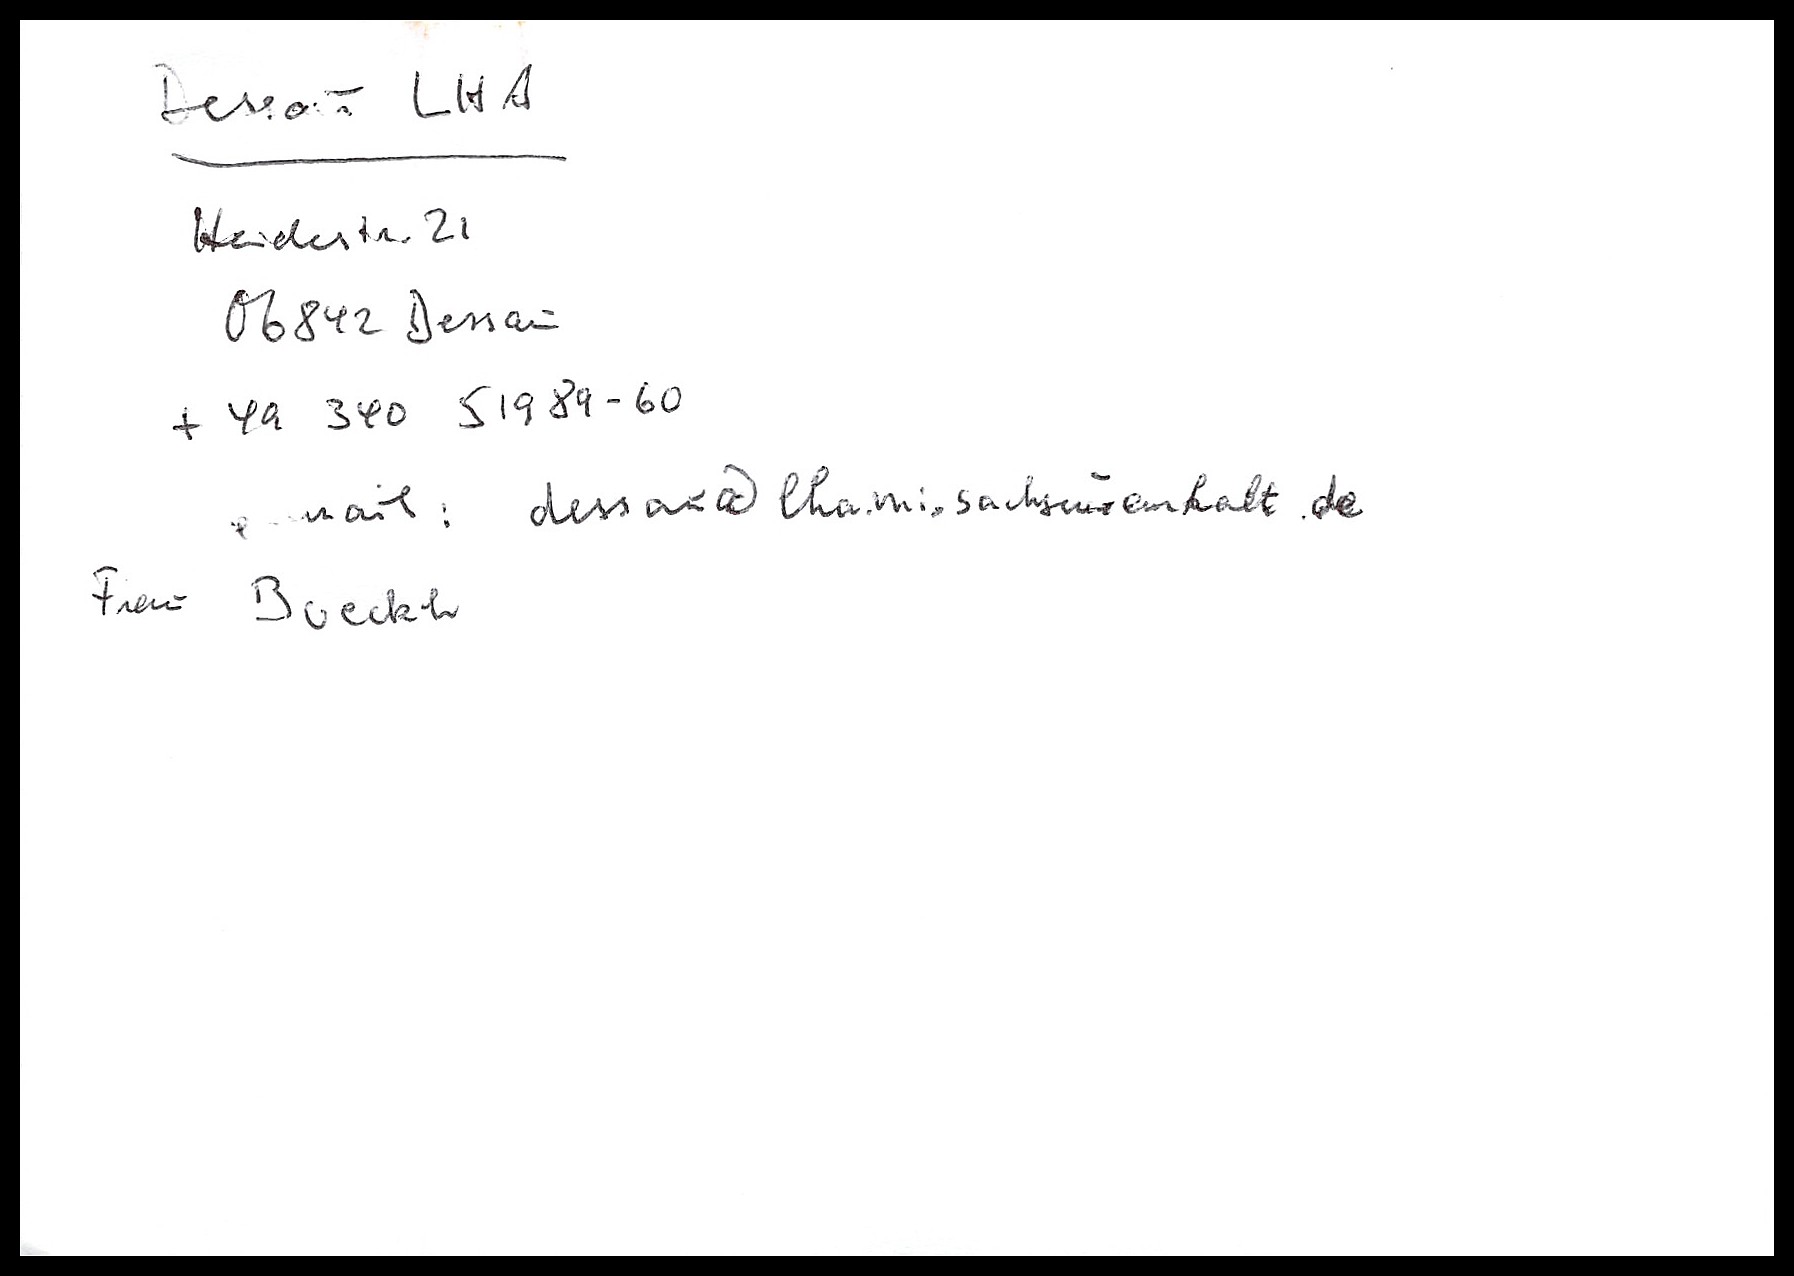 Dessau LHA
Heidestr. 21
06842 Dessau
+ 49 340 51989-60
e-mail: dessau@lha.mi.sachsen-anhalt.de
Frau Boeckh